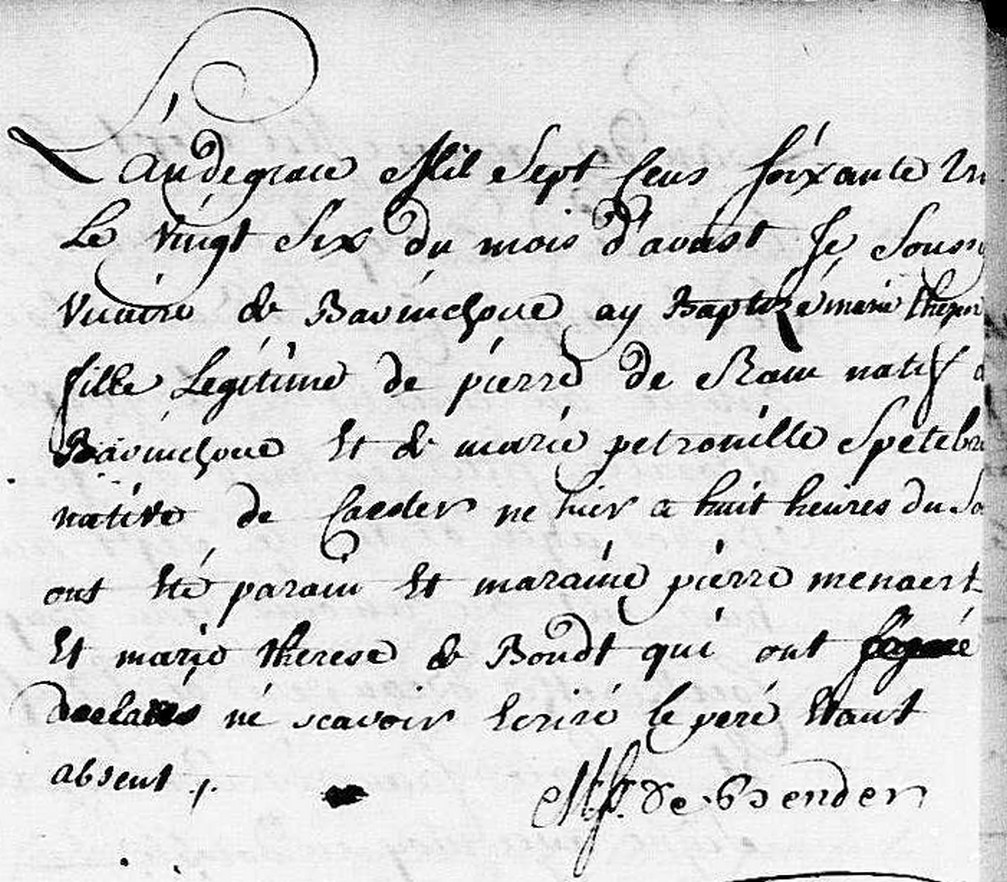 L'andegrace Mil Sept Cens soixante
Le vingt Six du mois d'avust Je Sous
vicaire de Bavinchove ay Baptizé marie there
fille Legitime de pierre de Ram natif
Bavinchove Et de marie petronille Spetebr
native de Cacster ne hier a huit heures du So
ont Eté parain Et maraine pierre menaert
Et marie therese de Bondt qui ont
declares né scavoir Ecriré le peré Etant
absent
de Bender